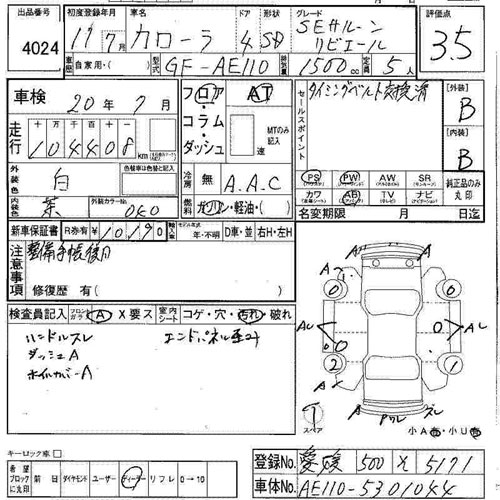 出品番号 初度登録年月 車名 ドア 形状 グレード 評価点
4024 11年7月 カローラ 4 SD SEサルーン リビエール 3.5
車歴 自家用・( ) 型式 GF-AE110 排気量 1500cc 定員 5人
車検 20年7月
フロア コラム・ダッシュ
AT
MTのみ記入
速
セールスポイント
タイミングベルト交換済
[外装] B
[内装] B
走行
十 万 千 百 十 一
104408 km
外装色 白
色替車は色替と記入
内装色 茶
外装カラーNo. 040
冷房 無 A.A.C
燃料 ガソリン・軽油・( )
PS PW AW SR
カワ AB TV ナビ
純正品のみ丸印
名変期限 月 日迄
新車保証書 R券有 ¥10,190
モデル年式 年・不明
D車・並 右H・左H
注意事項
整備手帳後日
修復歴 有( )
検査員記入 フロントガラス A X要ス 室内シート コゲ・穴・汚れ・破れ
ハンドルスレ
ダッシュA
ホイルカバーA
エンドパネル歪み
A A A A
0 0 0 0 2 1
スペア
小A 小U
キーロック車
希望ブロックに丸印 前10 ダイヤモンド ユーザー ディーラー リフレ 0→10
登録No. 愛媛 500 そ 5171
車体No. AE110-5301044